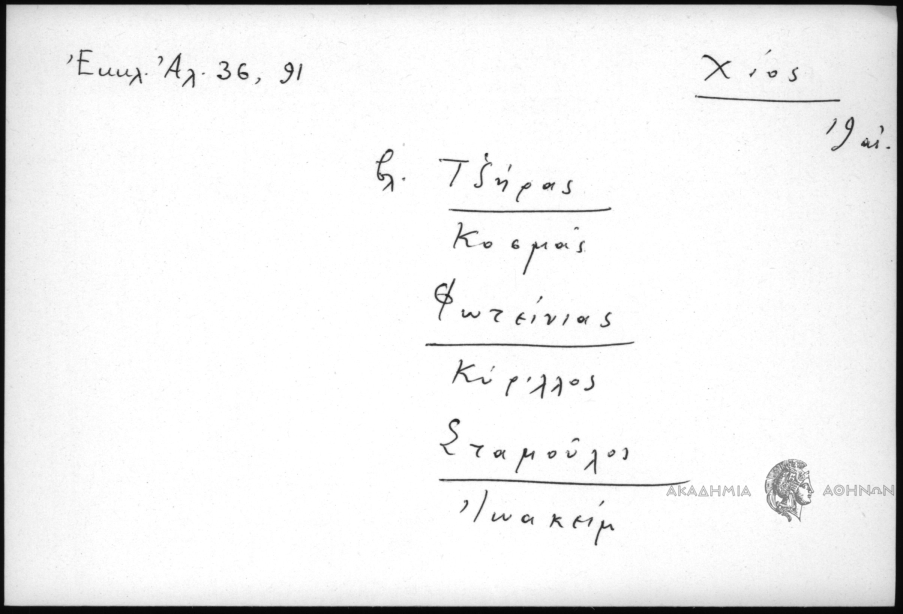 Ἐκκλ. Ἀλ. 36, 91
Χίος
19 αἰ.
βλ. Τζήρας
Κοσμᾶς
Φωτείνιας
Κύριλλος
Σταμοῦλος
Ἰωακείμ
ΑΚΑΔΗΜΙΑ ΑΘΗΝΩΝ